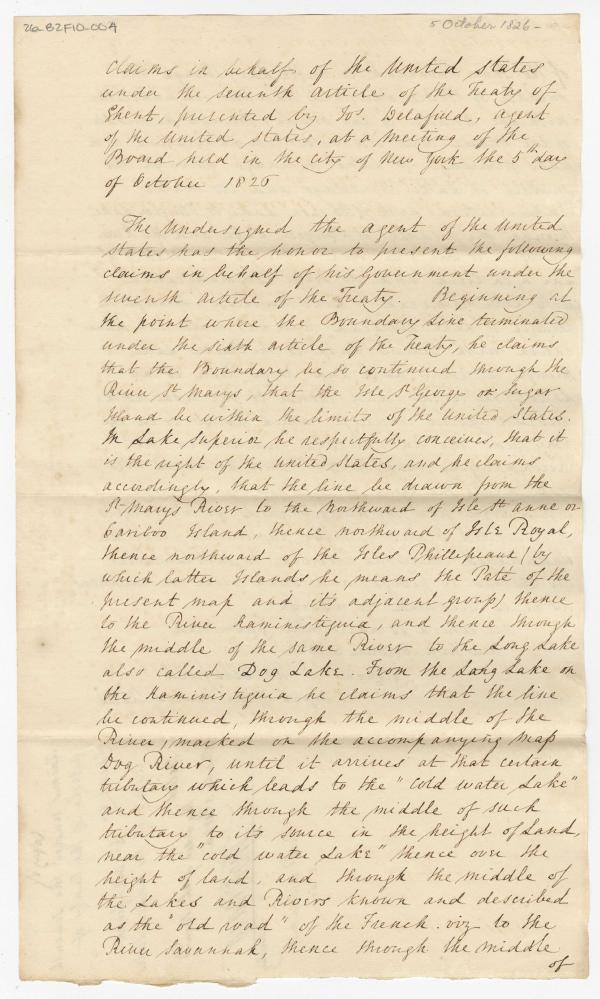 26-B2F10-004
5 October 1826-
Claims in behalf of the United States
under the seventh article of the Treaty of
Ghent, presented by Jos. Delafield, agent
of the United States, at a meeting of the
Board held in the city of New York the 5th day
of October 1826
The Undersigned the agent of the United
States has the honor to present the following
claims in behalf of his Government under the
seventh article of the Treaty. Beginning at
the point where the Boundary Line terminated
under the sixth article of the Treaty, he claims
that the Boundary be so continued through the
River St Marys, that the Isle St George or Sugar
Island be within the limits of the United States.
In Lake Superior he respectfully conceives, that it
is the right of the United States, and he claims
accordingly, that the line be drawn from the
St Marys River to the Northward of Isle St anne or
Cariboo Island, thence northward of Isle Royal,
thence northward of the Isles Phillipeaux (by
which latter Islands he means the Paté of the
present map and its adjacent group) thence
to the River Kaministiguia, and thence through
the middle of the same River to the Long Lake
also called Dog Lake. From the Long Lake on
the Kaministiguia he claims that the line
be continued, through the middle of the
River, marked on the accompanying map
Dog River, until it arrives at that certain
tributary which leads to the "Cold water Lake"
and thence through the middle of such
tributary to its source in the height of Land,
near the "cold water Lake" thence over the
height of land, and through the middle of
the Lakes and Rivers known and described
as the "old road" of the French. viz to the
River Savannah, thence through the middle
of